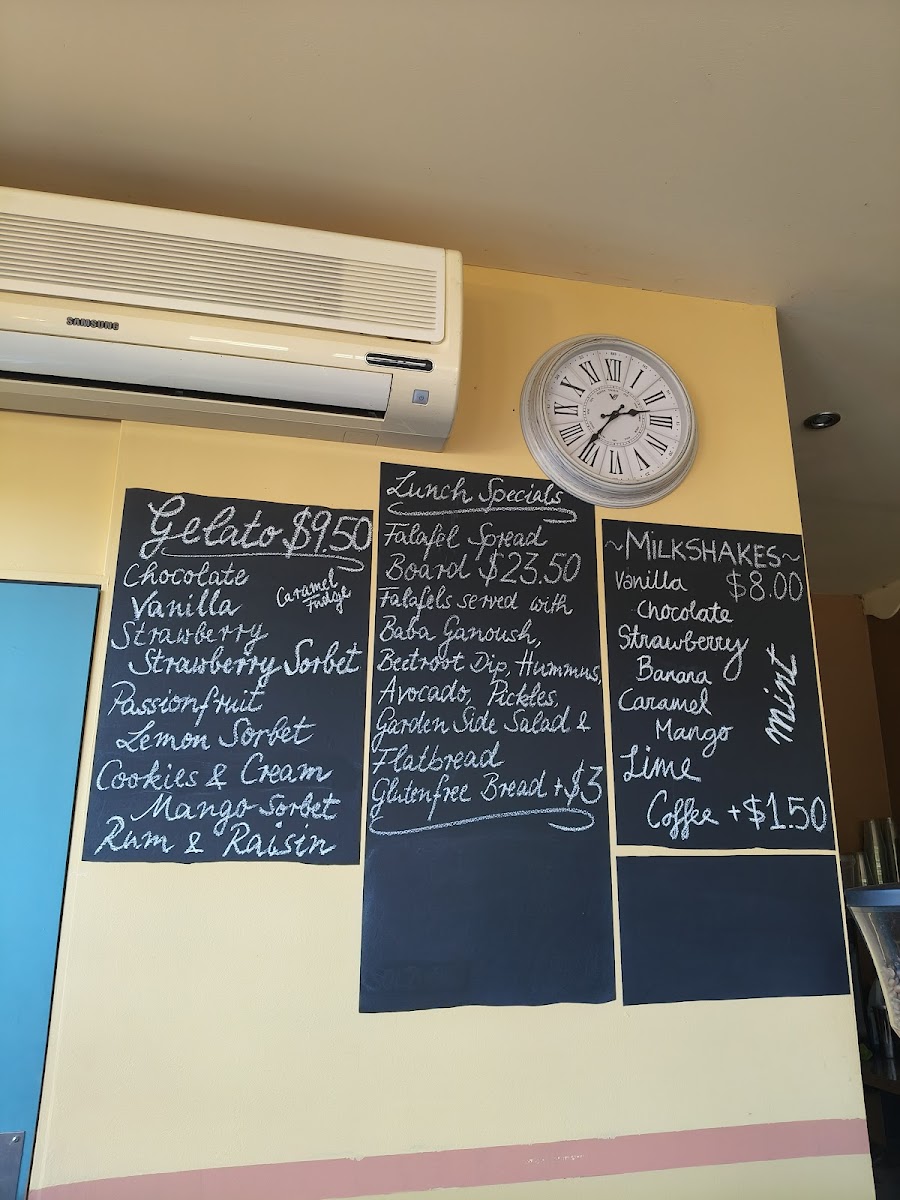 SAMSUNG
XII
I
II
III
IIII
V
VI
VII
VIII
IX
X
XI
Gelato $9.50
Chocolate
Caramel
Fudge
Vanilla
Strawberry
Strawberry Sorbet
Passionfruit
Lemon Sorbet
Cookies & Cream
Mango Sorbet
Rum & Raisin
Lunch Specials
Falafel Spread
Board $23.50
Falafels served with
Baba Ganoush,
Beetroot Dip, Hummus,
Avocado, Pickles,
Garden Side Salad &
Flatbread
Glutenfree Bread + $3
~MILKSHAKES~
Vanilla $8.00
Chocolate
Strawberry
Banana
Caramel
Mango
mint
Lime
Coffee + $1.50